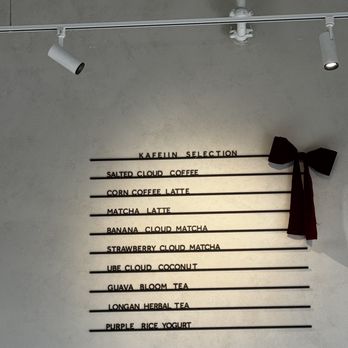 KAFEIIN SELECTION
SALTED CLOUD COFFEE
CORN COFFEE LATTE
MATCHA LATTE
BANANA CLOUD MATCHA
STRAWBERRY CLOUD MATCHA
UBE CLOUD COCONUT
GUAVA BLOOM TEA
LONGAN HERBAL TEA
PURPLE RICE YOGURT